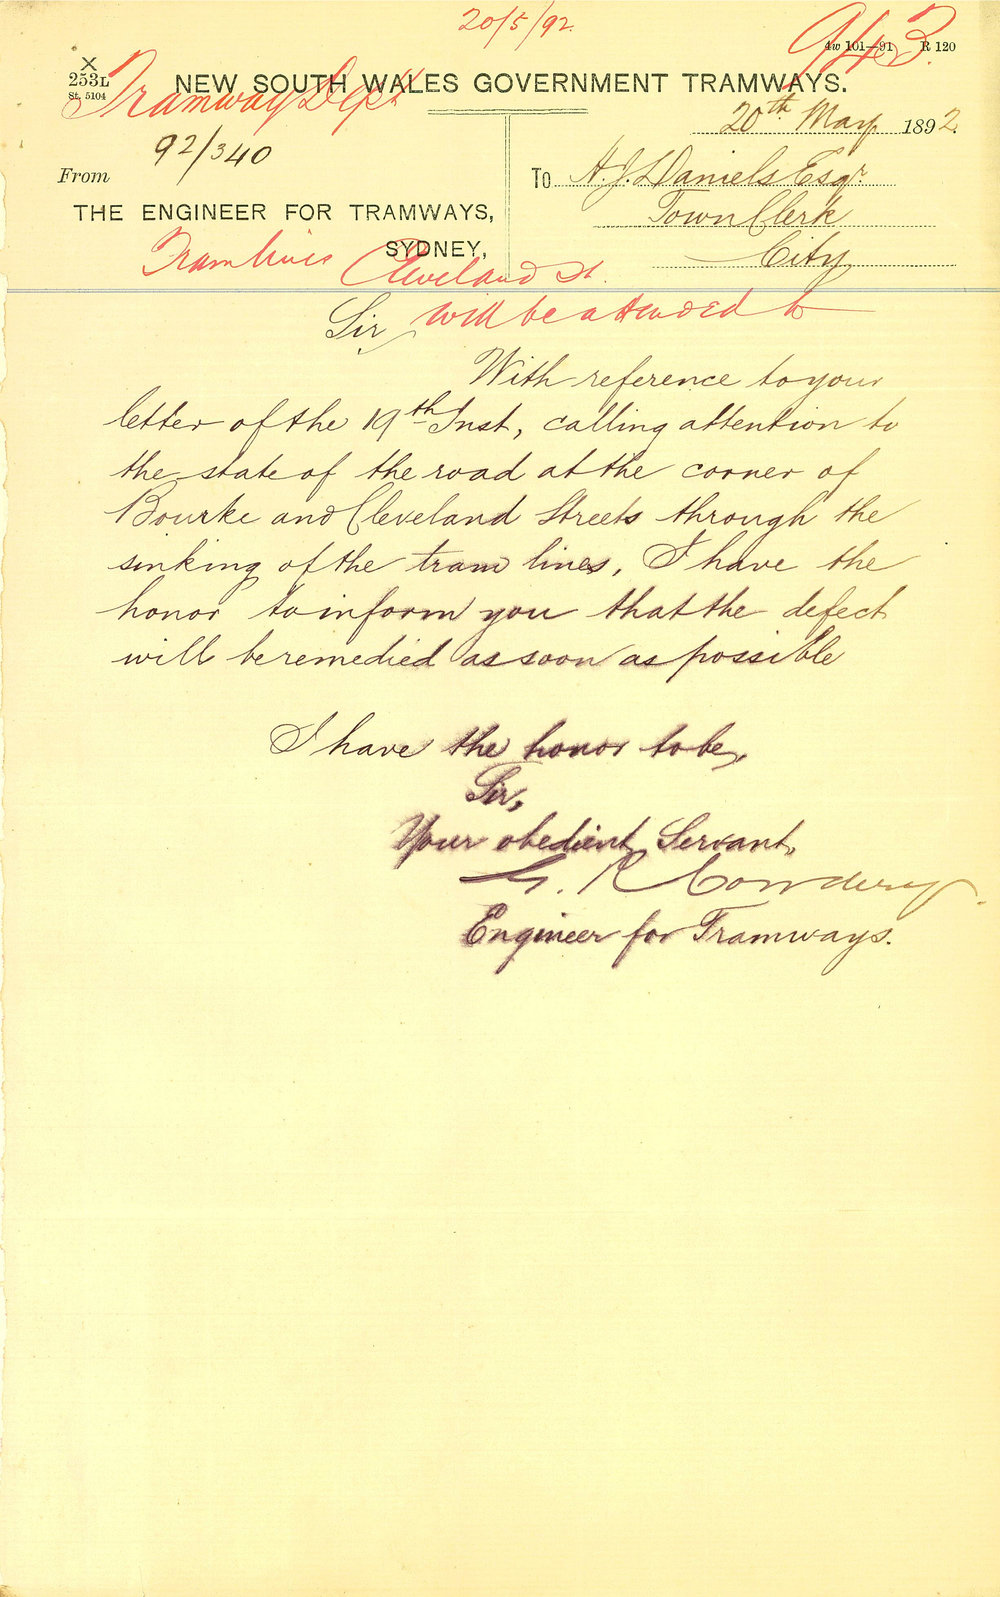 20/5/92.
943.
4w 101—91 R 120
X
253L
St. 5104
Tramway Dept
NEW SOUTH WALES GOVERNMENT TRAMWAYS.
20th May 1892.
92/340
From
THE ENGINEER FOR TRAMWAYS,
SYDNEY,
To H. J. Daniels Esqr.
Town Clerk
City
Tramlines Cleveland St.
will be attended to
Sir,
With reference to your
letter of the 19th Inst, calling attention to
the state of the road at the corner of
Bourke and Cleveland Streets through the
sinking of the tram lines, I have the
honor to inform you that the defect
will be remedied as soon as possible
I have the honor to be,
Sir,
Your obedient Servant,
G. R Cowdery.
Engineer for Tramways.